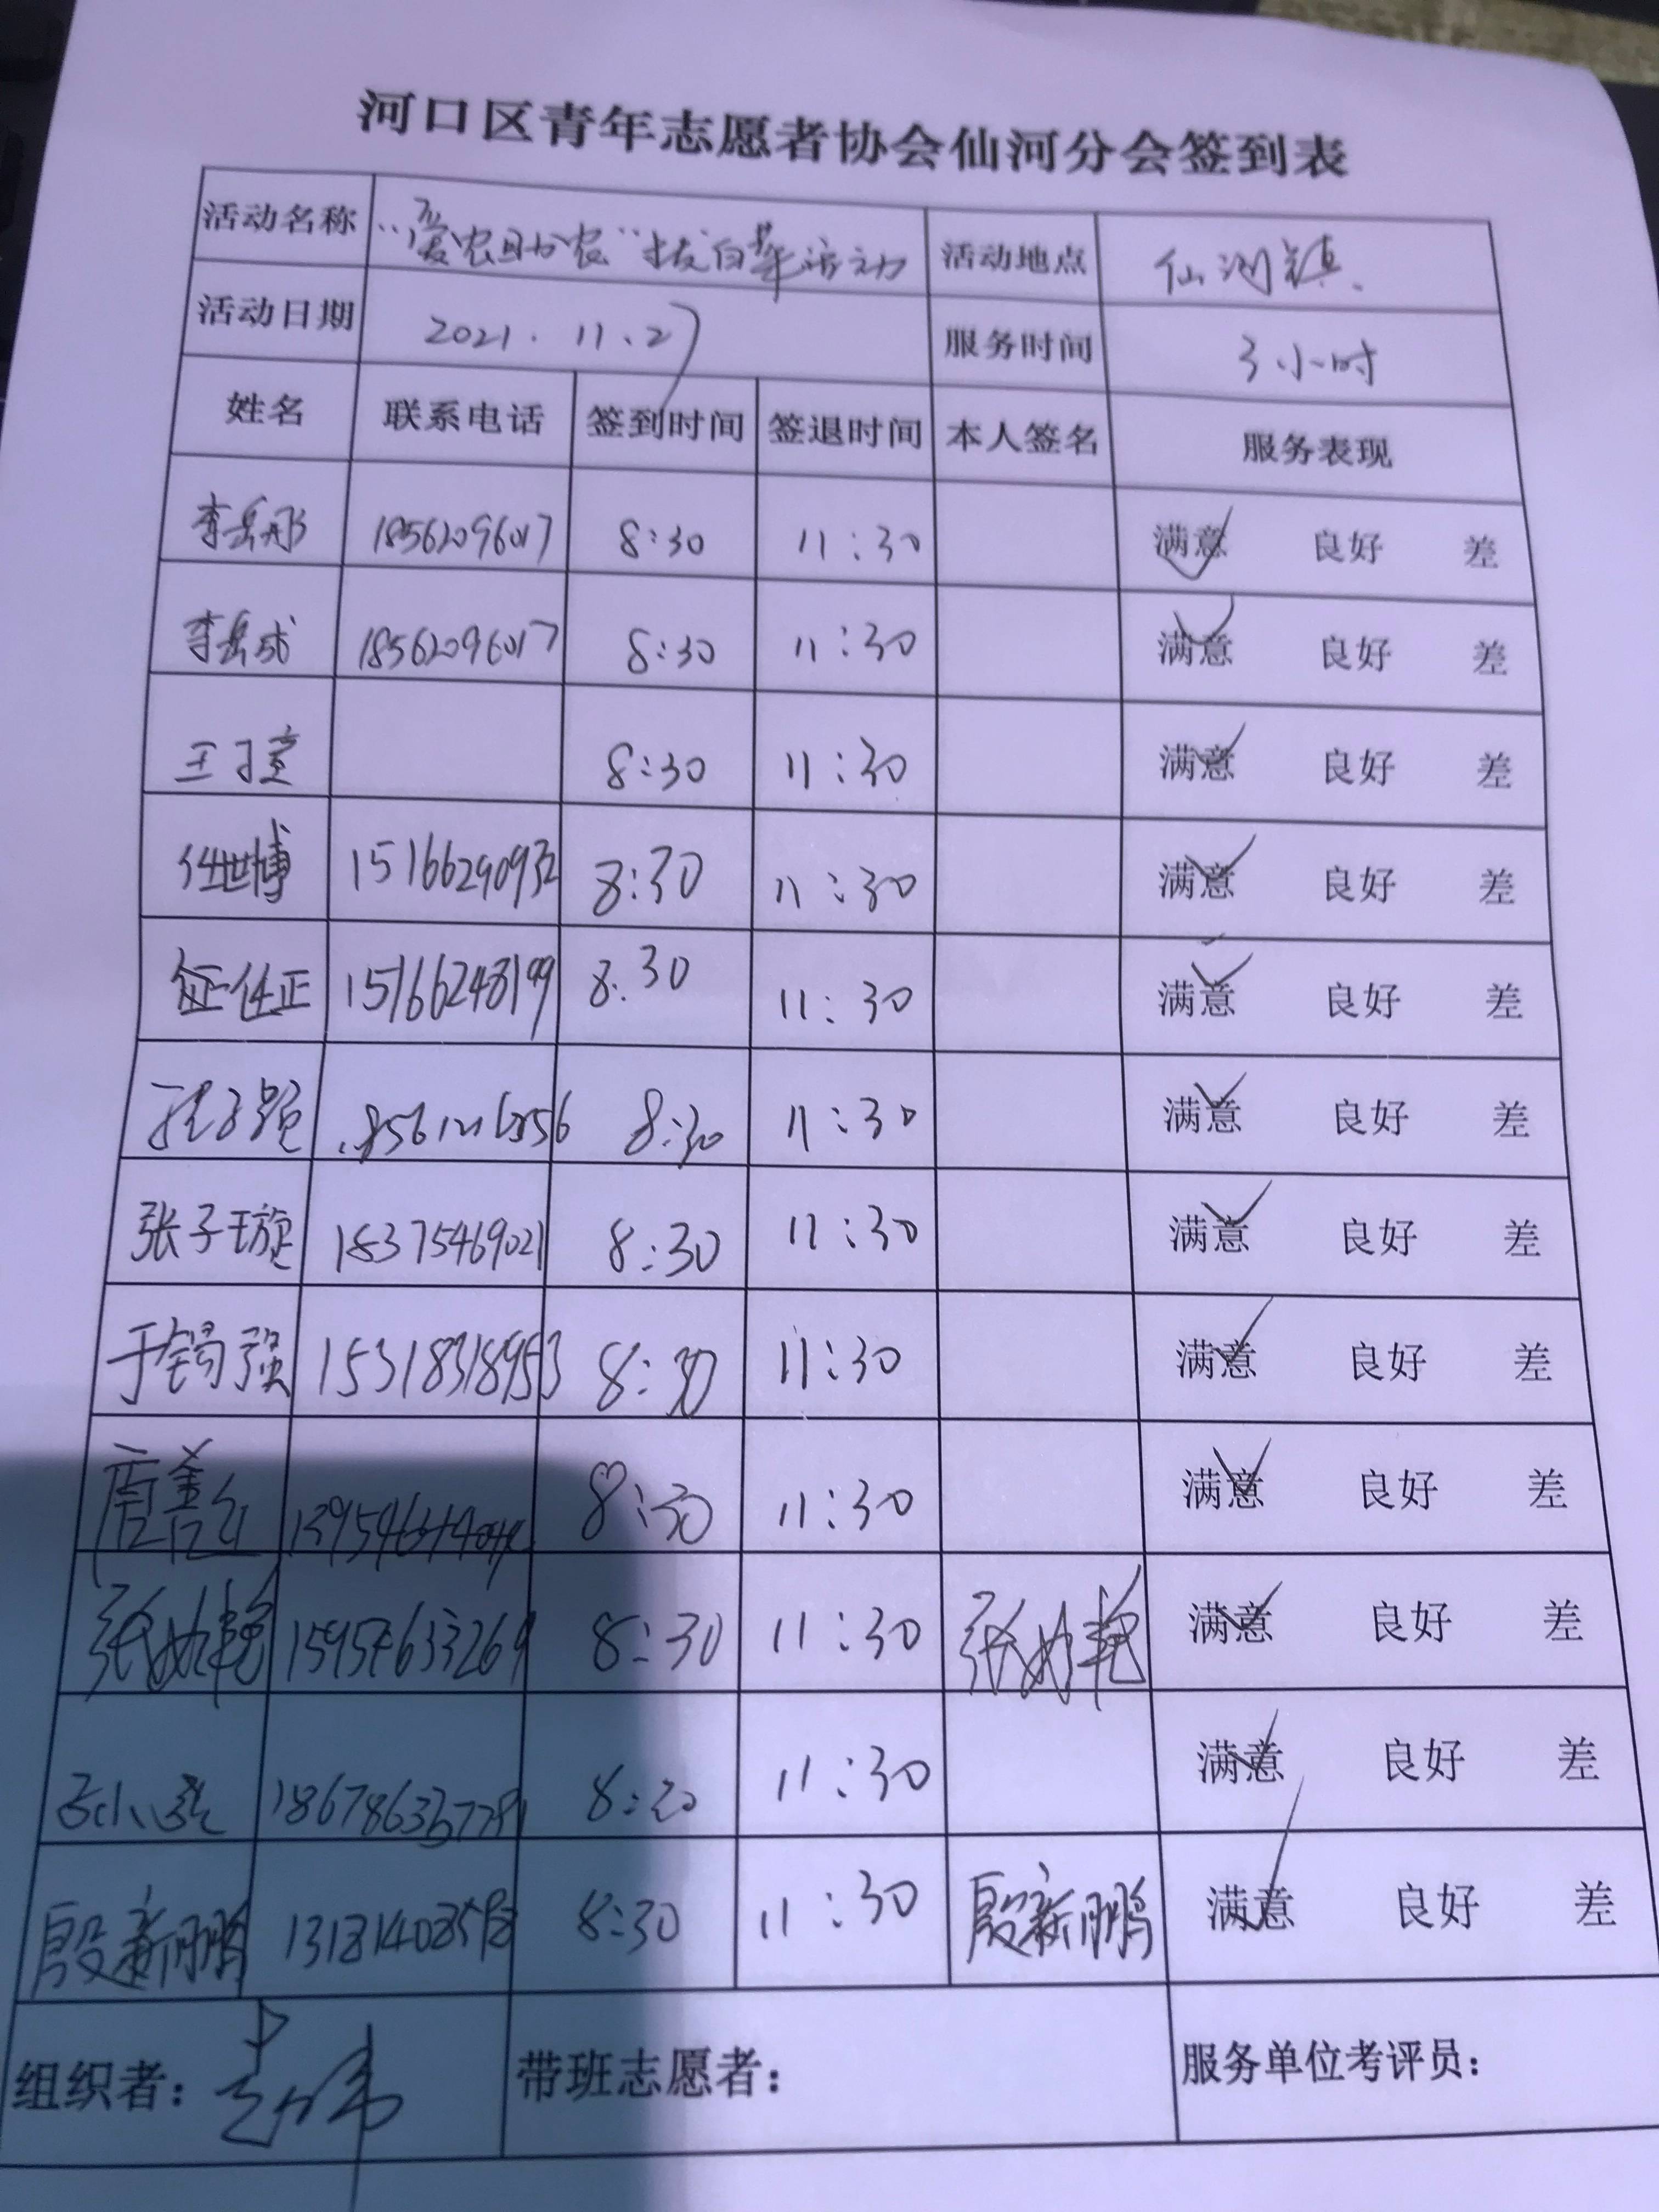 河口区青年志愿者协会仙河分会签到表
活动名称 "爱农助农"拔白菜活动 活动地点 仙河镇
活动日期 2021.11.27 服务时间 3小时
姓名 联系电话 签到时间 签退时间 本人签名 服务表现
李岳彤 18562096017 8:30 11:30 满意 良好 差
李岳成 18562096017 8:30 11:30 满意 良好 差
王子萱 8:30 11:30 满意 良好 差
任世博 15166290932 8:30 11:30 满意 良好 差
任正 15166248199 8:30 11:30 满意 良好 差
8:30 11:30 满意 良好 差
张子璇 18375469021 8:30 11:30 满意 良好 差
于锡强 15318318953 8:30 11:30 满意 良好 差
唐善 8:30 11:30 满意 良好 差
张如艳 15954633269 8:30 11:30 张如艳 满意 良好 差
8:30 11:30 满意 良好 差
殷新鹏 8:30 11:30 殷新鹏 满意 良好 差
组织者: 带班志愿者: 服务单位考评员: